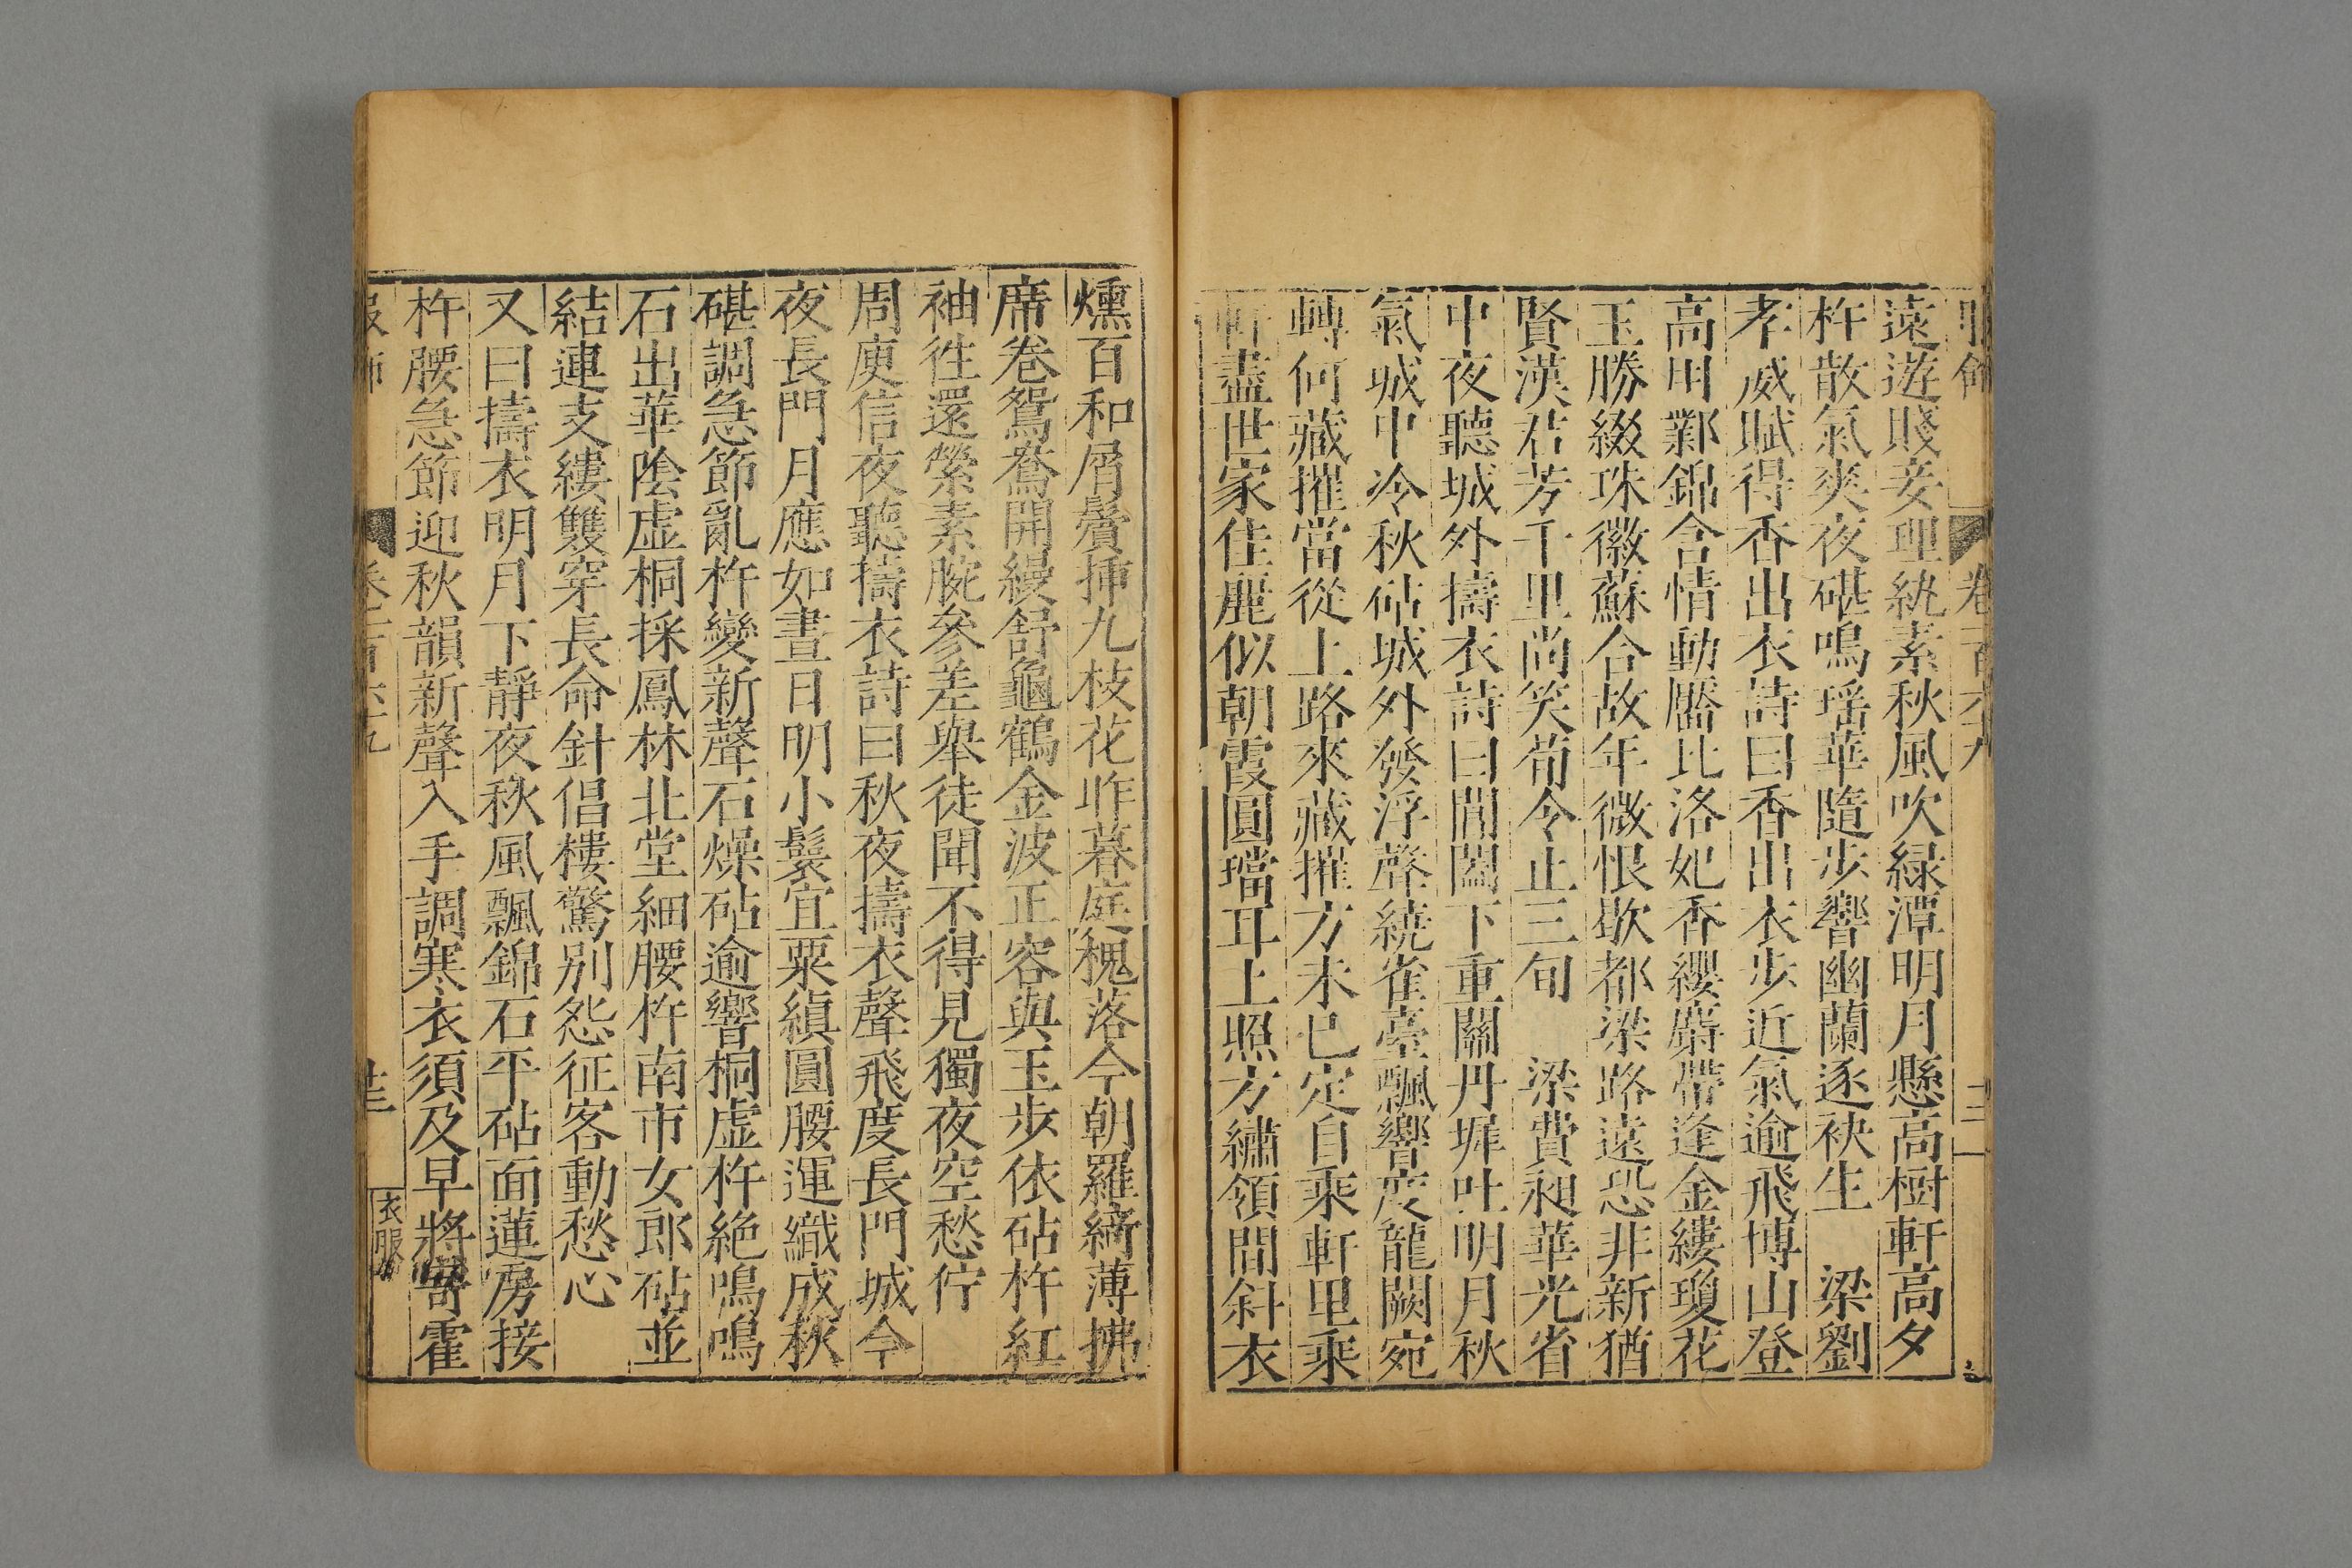 卷百六九
遠遊賤妾理紈素秋風吹緑潭明月懸高樹軒高夕
杵散氣爽夜碪鳴瑶華隨步響幽蘭逐袂生 梁劉
孝威賦得香出衣詩曰香出衣步近氣逾飛博山登
高用鄴錦含情動靨比洛妃香纓麝帶逢金縷瓊花
玉勝綴珠徽蘇合故年微恨歇都梁路遠恐非新猶
賢漢君芳千里尚笑荀令止三旬 梁費昶華光省
中夜聽城外擣衣詩曰閶闔下重關丹墀吐明月秋
氣城中冷秋砧城外發浮聲繞雀臺飄響度龍闕宛
轉何藏摧當從上路來藏摧方未已定自乘軒里乘
軒盡世家佳麗似朝霞圓璫耳上照方繡領間斜衣
燻百和屑鬢揷九枝花昨暮庭槐落今朝羅綺薄拂
席卷鴛鴦開縵舒龜鶴金波正容與玉步依砧杵紅
袖徃還縈素腕參差舉徒聞不得見獨夜空愁佇
周庾信夜聽擣衣詩曰秋夜擣衣聲飛度長門城今
夜長門月應如晝日明小鬟宜粟縝圓腰運織成秋
碪調急節亂杵變新聲石燥砧逾響桐虛杵絶鳴鳴
石出華陰虛桐採鳳林北堂細腰杵南市女郎砧並
結連支縷雙穿長命針倡樓驚別怨征客動愁心
又曰擣衣明月下靜夜秋風飄錦石平砧面蓮房接
杵腰急節迎秋韻新聲入手調寒衣須及早將寄霍
衣服